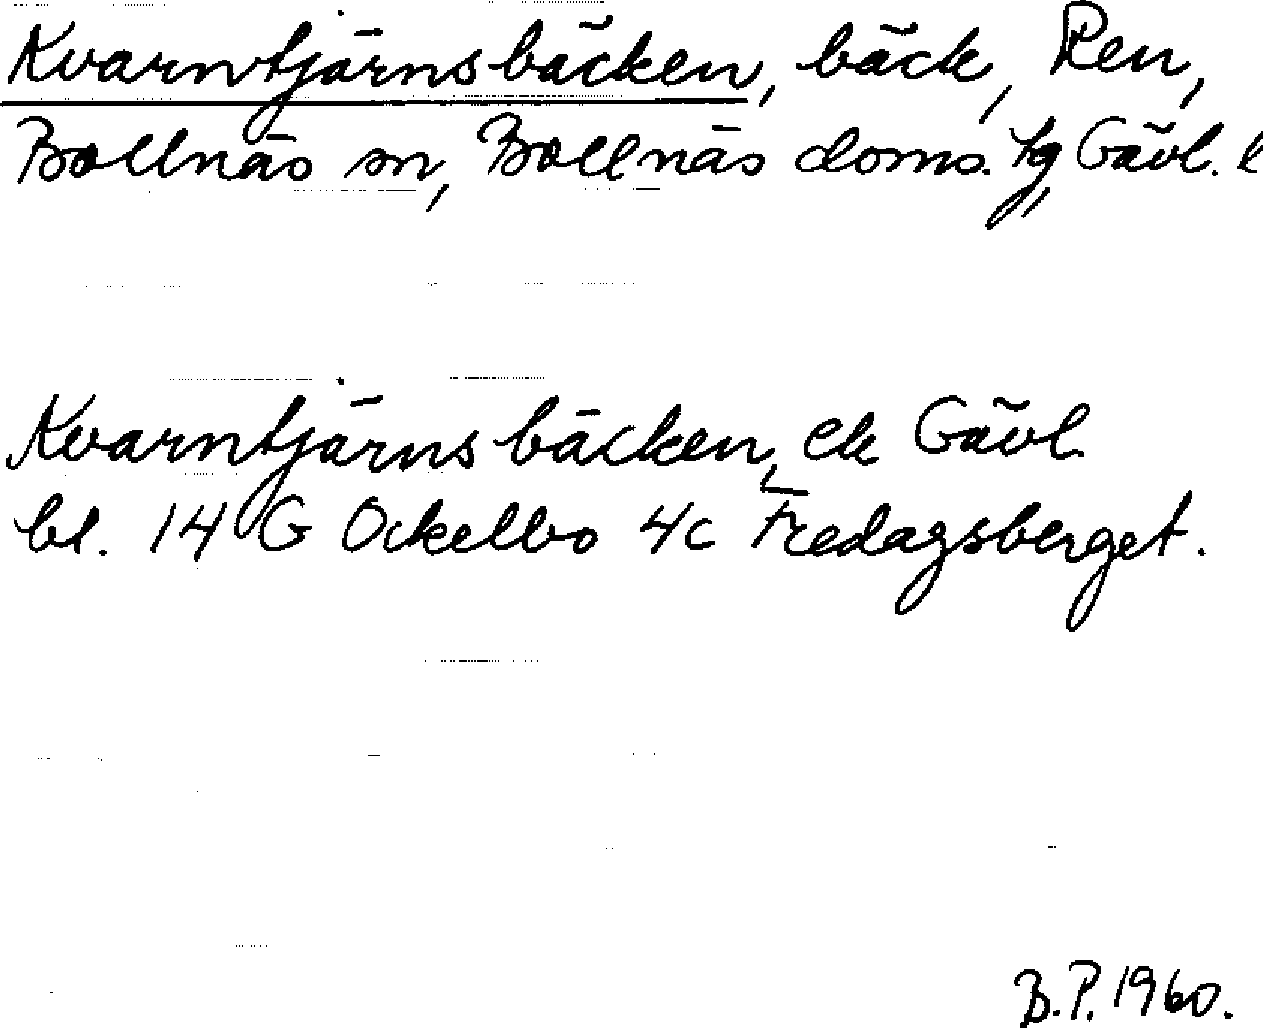 Kvarntjärnsbäcken, bäck, Ren,
Bollnäs sn, Bollnäs doms. tg, Gävl. l
Kvarntjärnsbäcken, ek Gävl.
bl. 14 G Ockelbo 4c Fredagsberget.
B.P. 1960.